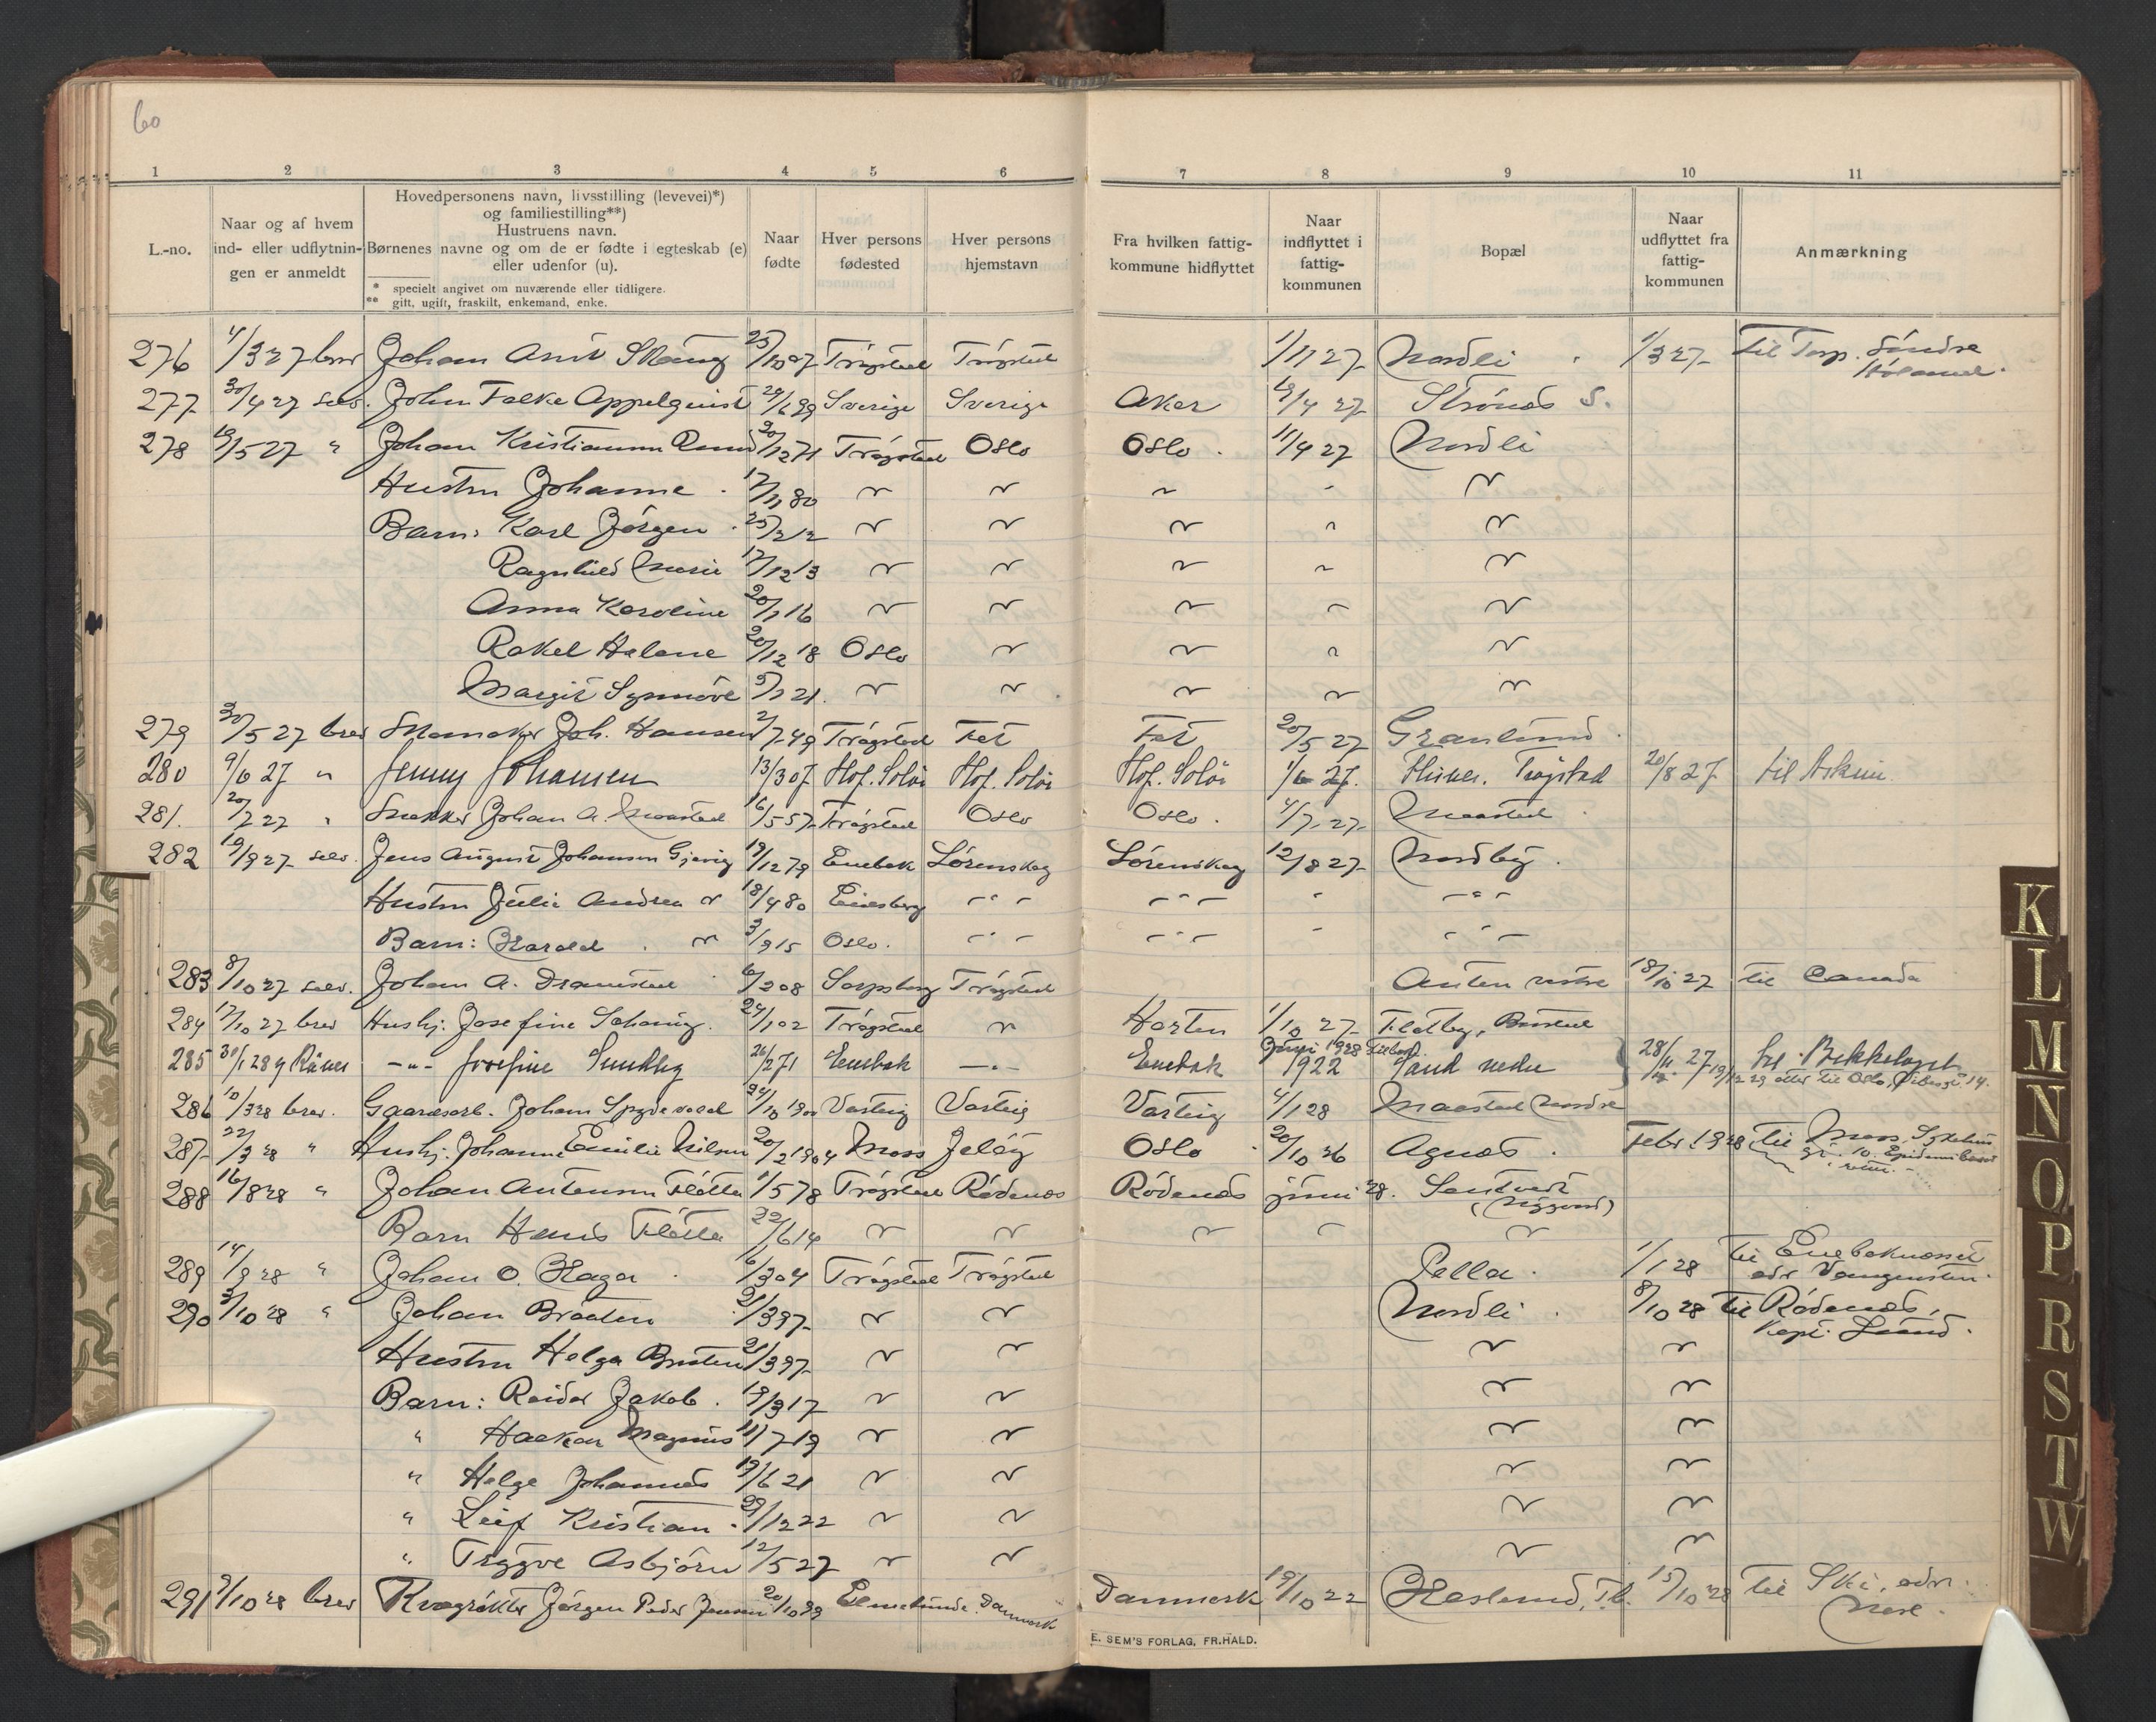 60
1 2 3 4 5 6 7 8 9 10 11
L.-no.
Naar og af hvem
ind- eller udflytnin-
gen er anmeldt
Hovedpersonens navn, livsstilling (levevei)*)
og familiestilling**)
Hustruens navn.
Børnenes navne og om de er fødte i egteskab (e)
eller udenfor (u).
* specielt angivet om nuværende eller tidligere.
** gift, ugift, fraskilt, enkemand, enke.
Naar
fødte
Hver persons
fødested
Hver persons
hjemstavn
Fra hvilken fattig-
kommune hidflyttet
Naar
indflyttet i
fattig-
kommunen
Bopæl
Naar
udflyttet fra
fattig-
kommunen
Anmærkning
276 4/3 27 brev Johan Arvit 25/10 07 Trøgstad Trøgstad 1/11 27 Nordli 1/3 27 til Torp. Søndre
Høland.
277 30/4 27 selv. John Falke Appelquist 29/6 99 Sverige Sverige Aker 19/4 27 Strønes S.
278 19/5 27 " Johan Kristiansen 20/12 71 Trøgstad Oslo Oslo. 11/4 27 Nordli
Hustru Johanne. 17/11 80 " " " " "
Barn: Karl Jørgen. 25/2 12 " " " " "
Ragnhild Marie 17/12 13 " " " " "
Anna Karoline 20/1 16 " " " " "
Rakel Helene 20/12 18 Oslo " " " "
Margit Synnøve 5/1 21. " " " " "
279 30/5 27 brev Skomaker Joh. Hansen 2/7 49 Trøgstad Fet Fet 20/5 27 Granlund.
280 9/6 27 " Jenny Johansen 13/3 07 Hof. Solør Hof. Solør Hof. Solør 1/6 27. Trøgstad 20/8 27 til Askim.
281. 20/7 27 " Snekker Johan A. Maastad 16/5 57 Trøgstad Oslo Oslo. 4/7 27 Maastad.
282 19/9 27 selv. Jens August Johansen Gjevig 19/12 79 Enebak Lørenskog Lørenskog 12/8 27 Nordby.
Hustru Julie Andrea " 18/4 80 Eidsberg -"- -"- " -"-
Barn: Harald. " 3/9 15 Oslo. -"- -"- " -"-
283 8/10 27 selv. Johan A. Dramstad 6/2 08 Sarpsborg Trøgstad Anten vestre 18/10 27 til Canada
284 17/10 27 brev Hushj. Josefine Schaning. 24/1 02 Trøgstad " Horten 1/10 27 Flatby, Båstad
285 30/1 28 -"- Josefine 26/2 71 Enebak -"- Enebak 1922 Sand nedre 28/11 27 til Bekkelaget
19/12 29 atter til Oslo, 14.
286 10/3 28 brev. Gaardsarb. Johan Spydevold 24/10 1900 Varteig Varteig Varteig 4/1 28 Maastad Nordre
287 22/3 28 " Hushj. Johanne Emilie Nilsen 20/2 1904 Moss Jeløy Oslo 20/10 26 Agnes. Febr. 1928 til Moss Sykehus
10. Epidemi
retur.
288 16/8 28 " Johan Antonsen Fløtta 1/5 78 Trøgstad Rødenes Rødenes juni 28. Sandvedt
Barn Hans Fløtta 22/6 14 " " " " "
289 14/9 28 " Johan O. Haga. 6/3 04 Trøgstad Trøgstad Pella. 1/1 28 til Enebaknesset
adr Vangensten.
290 3/10 28 " Johan Bråten 21/3 97 " " Nordli. 8/10 28 til Rødenes,
Kapt. Lund.
Hustru Helga Bråten 21/3 97 " " " "
Barn: Reidar Jakob. 19/3 17 " " " "
" Haakon Magnus 11/7 19 " " " "
" Helge Johannes 19/6 21 " " " "
" Leif Kristian. 29/12 22 " " " "
" Tryggve Asbjørn 12/5 27 " " " "
291 9/10 28 brev Kvægrøkter Jørgen Peder Jensen 20/10 99 Elmelunde. Danmark Danmark 19/10 22 Haslund, T.b. 15/10 28 til Ski, adr.
Nese.
E. SEM'S FORLAG, FR.HALD.
K
L
M
N
O
P
R
S
T
W